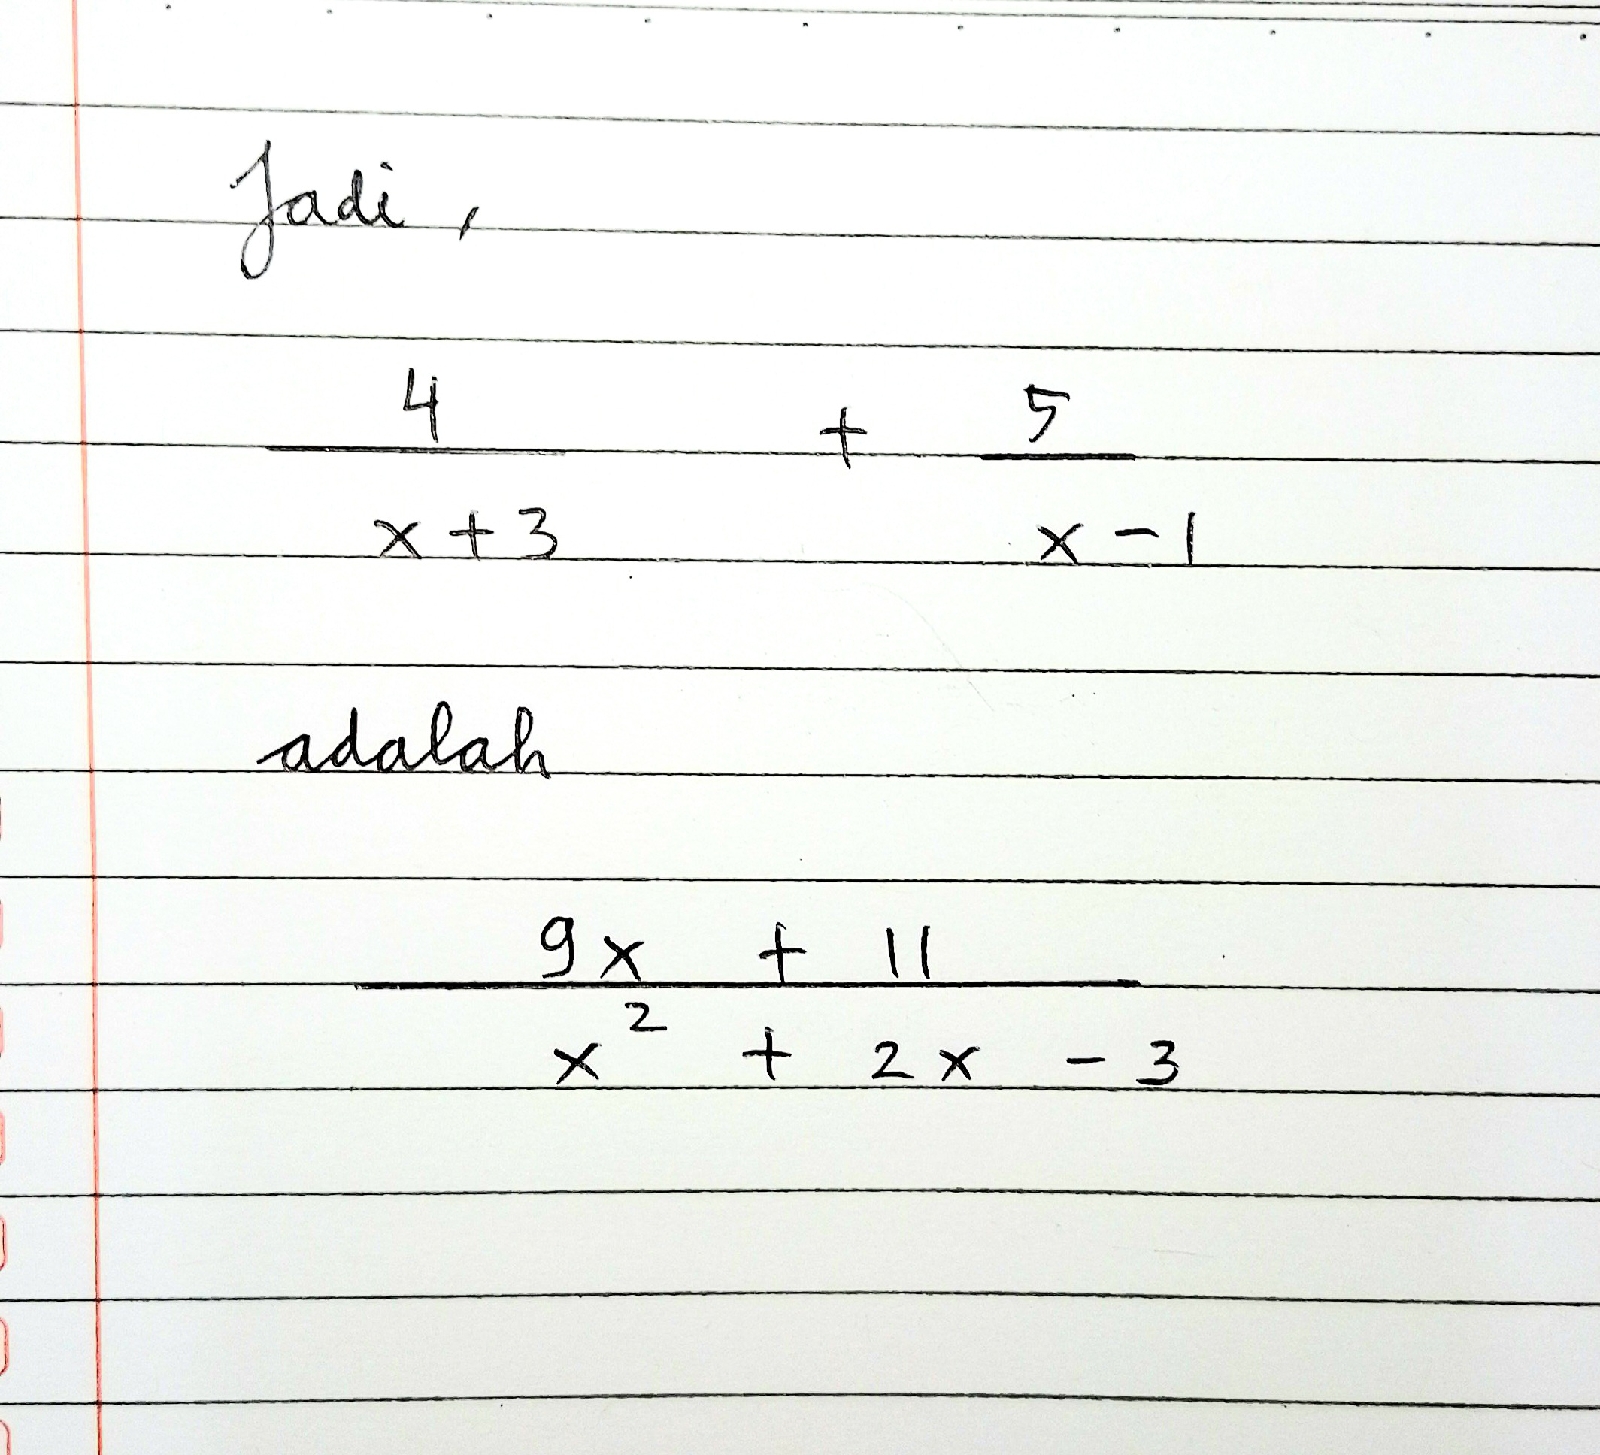 Jadi,
4 + 5
x + 3 x - 1
adalah
9x + 11
x² + 2x - 3